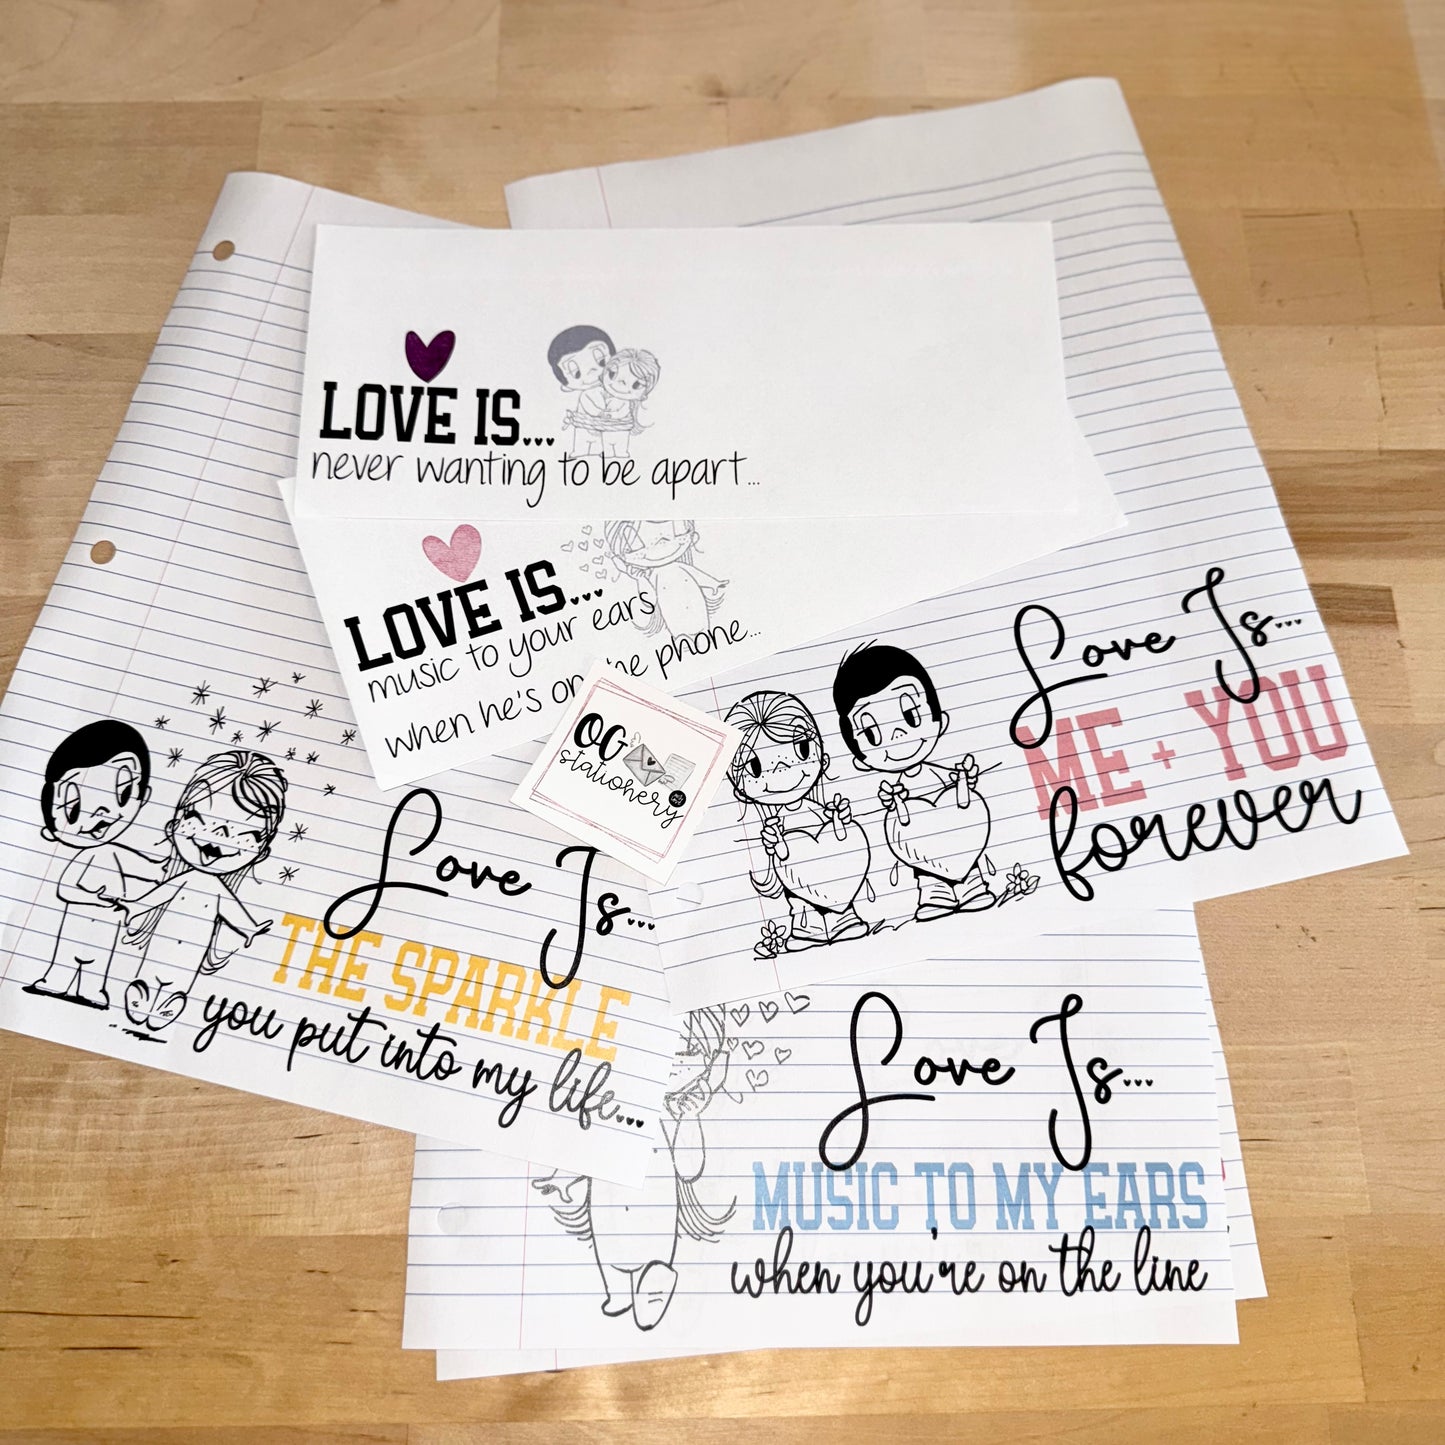 LOVE IS...
never wanting to be apart...
LOVE IS...
music to your ears
when he's on the phone...
OG
stationery
Love Is...
ME + YOU
forever
Love Is...
THE SPARKLE
you put into my life...
Love Is...
MUSIC TO MY EARS
when you're on the line